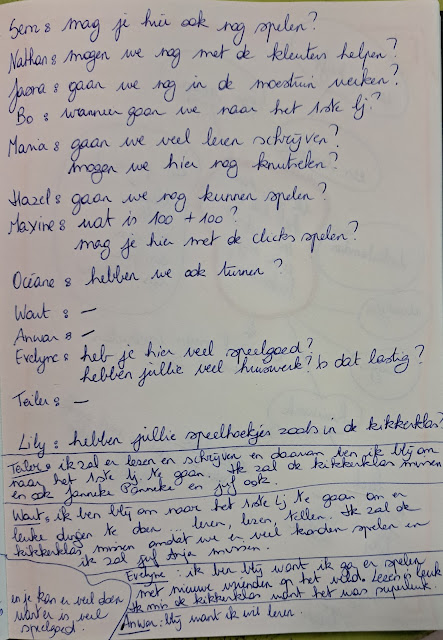 Sem: mag je hier ook nog spelen?
Nathan: mogen we nog met de kleuters helpen?
Jaora: gaan we nog in de moestuin werken?
Bo: wanneer gaan we naar het 1ste lj?
Mania: gaan we veel leren schrijven?
mogen we hier nog knutselen?
Hazel: gaan we nog kunnen spelen?
Maxine: wat is 100 + 100?
mag je hier met de clicks spelen?
Océane: hebben we ook turnen?
Wout: —
Anwar: —
Evelyne: heb je hier veel speelgoed?
hebben jullie veel huiswerk? Is dat lastig?
Teiler: —
Lily: hebben jullie speelhoekjes zoals in de kikkerklas?
Teiler: ik zal er lezen en schrijven en daarom ben ik blij om
naar het 1ste lj te gaan. Ik zal de kikkerklas missen
en ook Janneke Panneke en juf ook.
Wout: ik ben blij om naar het 1ste Lj te gaan om er
leuke dingen te doen ... leren, lezen, tellen. Ik zal de
kikkerklas missen omdat we er veel konden spelen en
ik zal juf Anja missen.
Evelyne: ik ben blij want ik ga er spelen
met nieuwe vrienden op het veld. Lezen is leuk
Ik mis de kikkerklas want het was superleuk.
en je kan er veel doen
want er is veel
speelgoed.
Anwar: blij want ik wil leren.